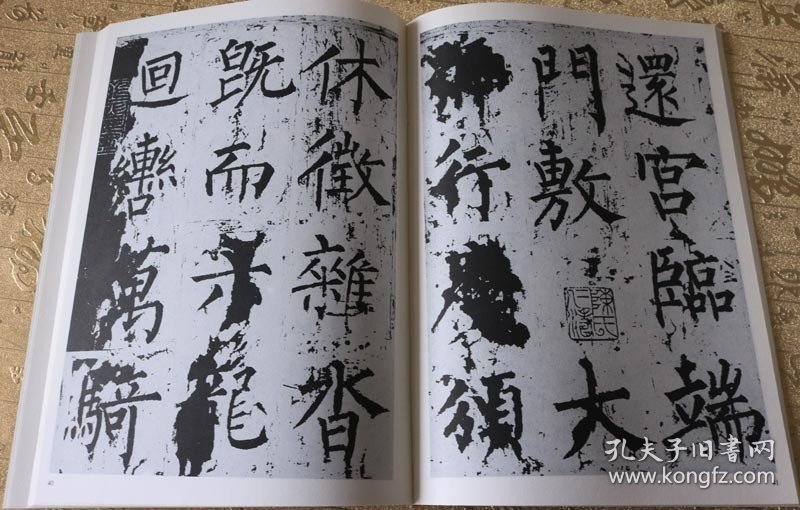 休徵雜沓
既而六龍
迴轡萬騎
還宮臨端
門敷大
行頒
40
孔夫子旧書网
www.kongfz.com